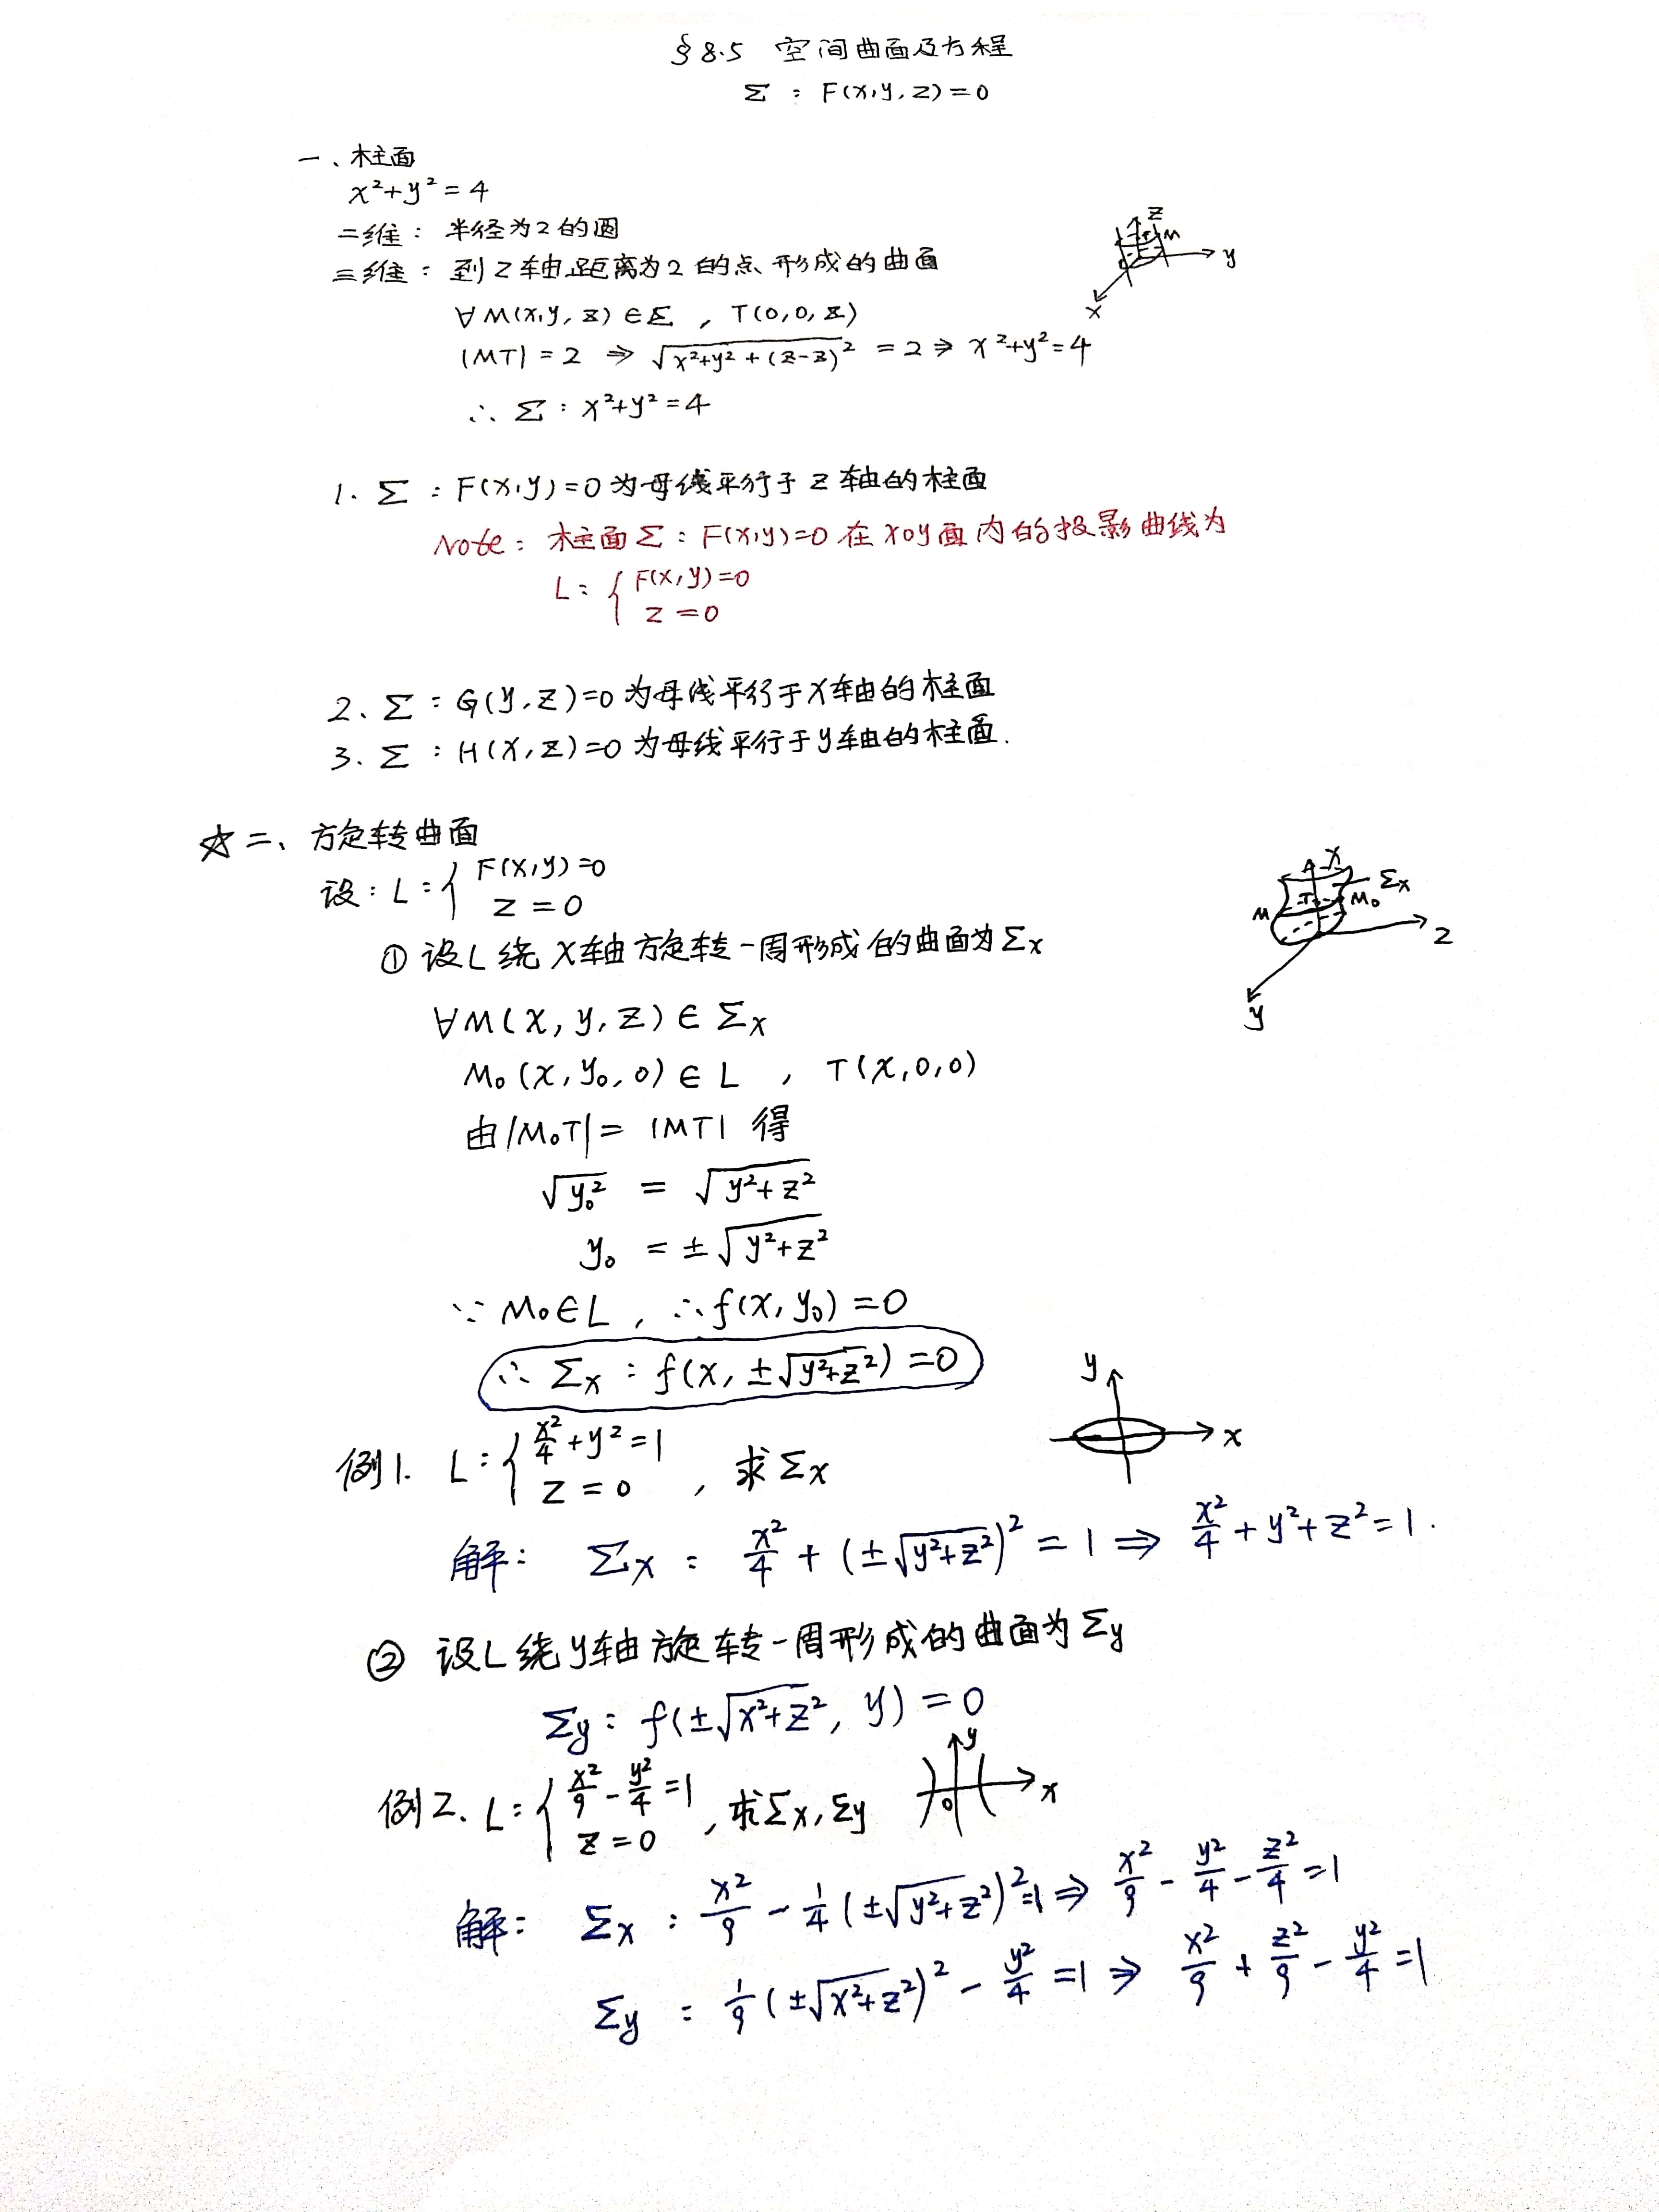 §8.5 空间曲面及方程
Σ : F(x,y,z)=0
一、柱面
x²+y²=4
二维: 半径为2的圆
三维: 到z轴距离为2的点形成的曲面
z
M
T
y
x
∀M(x,y,z)∈Σ , T(0,0,z)
|MT|=2 ⇒ √(x²+y²+(z-z)²) =2 ⇒ x²+y²=4
∴ Σ: x²+y²=4
1. Σ : F(x,y)=0 为母线平行于z轴的柱面
Note: 柱面Σ: F(x,y)=0 在xoy面内的投影曲线为
L: { F(x,y)=0
z=0
2、Σ : G(y,z)=0 为母线平行于x轴的柱面
3、Σ : H(x,z)=0 为母线平行于y轴的柱面.
☆二、旋转曲面
设: L: { F(x,y)=0
z=0
x
Σx
M T M₀
z
y
① 设L绕x轴旋转一周形成的曲面为Σx
∀M(x,y,z)∈Σx
M₀(x,y₀,0)∈L , T(x,0,0)
由|M₀T|=|MT| 得
√(y₀²) = √(y²+z²)
y₀ = ±√(y²+z²)
∵ M₀∈L, ∴f(x,y₀)=0
∴ Σx : f(x, ±√(y²+z²))=0
y
x
例1. L: { x²/4+y²=1
z=0 , 求Σx
解: Σx : x²/4 + (±√(y²+z²))² = 1 ⇒ x²/4+y²+z²=1.
② 设L绕y轴旋转一周形成的曲面为Σy
Σy: f(±√(x²+z²), y)=0
y
x
0
例2. L: { x²/9-y²/4=1
z=0 , 求Σx, Σy
解: Σx : x²/9 - 1/4(±√(y²+z²))²=1 ⇒ x²/9 - y²/4 - z²/4=1
Σy : 1/9(±√(x²+z²))² - y²/4=1 ⇒ x²/9 + z²/9 - y²/4=1